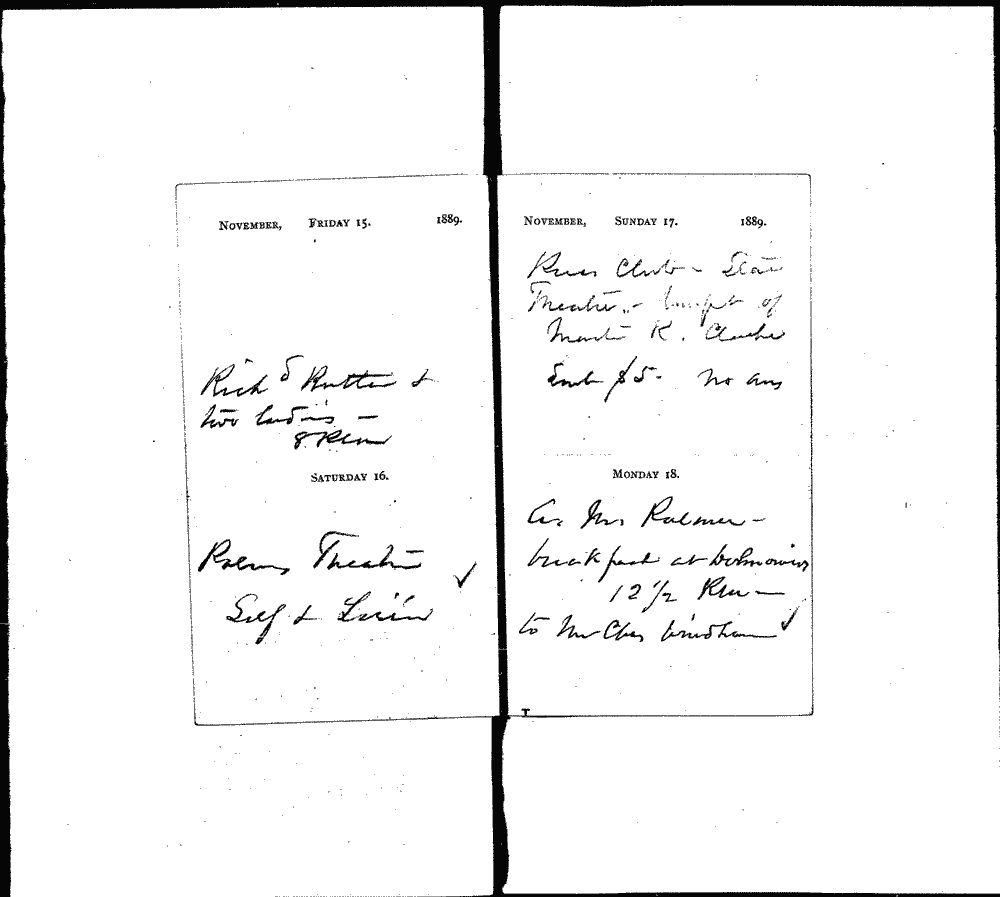 NOVEMBER, FRIDAY 15. 1889.
Rich d Rutter &
two ladies —
8 Pm
SATURDAY 16.
Palmers Theatre ✓
Self & Lizzie
NOVEMBER, SUNDAY 17. 1889.
Press Club - Star
Theatre - benefit of
R. Clarke
Sent $5- no ans
MONDAY 18.
Mr Palmer -
breakfast at Delmonicos
12 1/2 Pm —
to Mr Chas Windham ✓